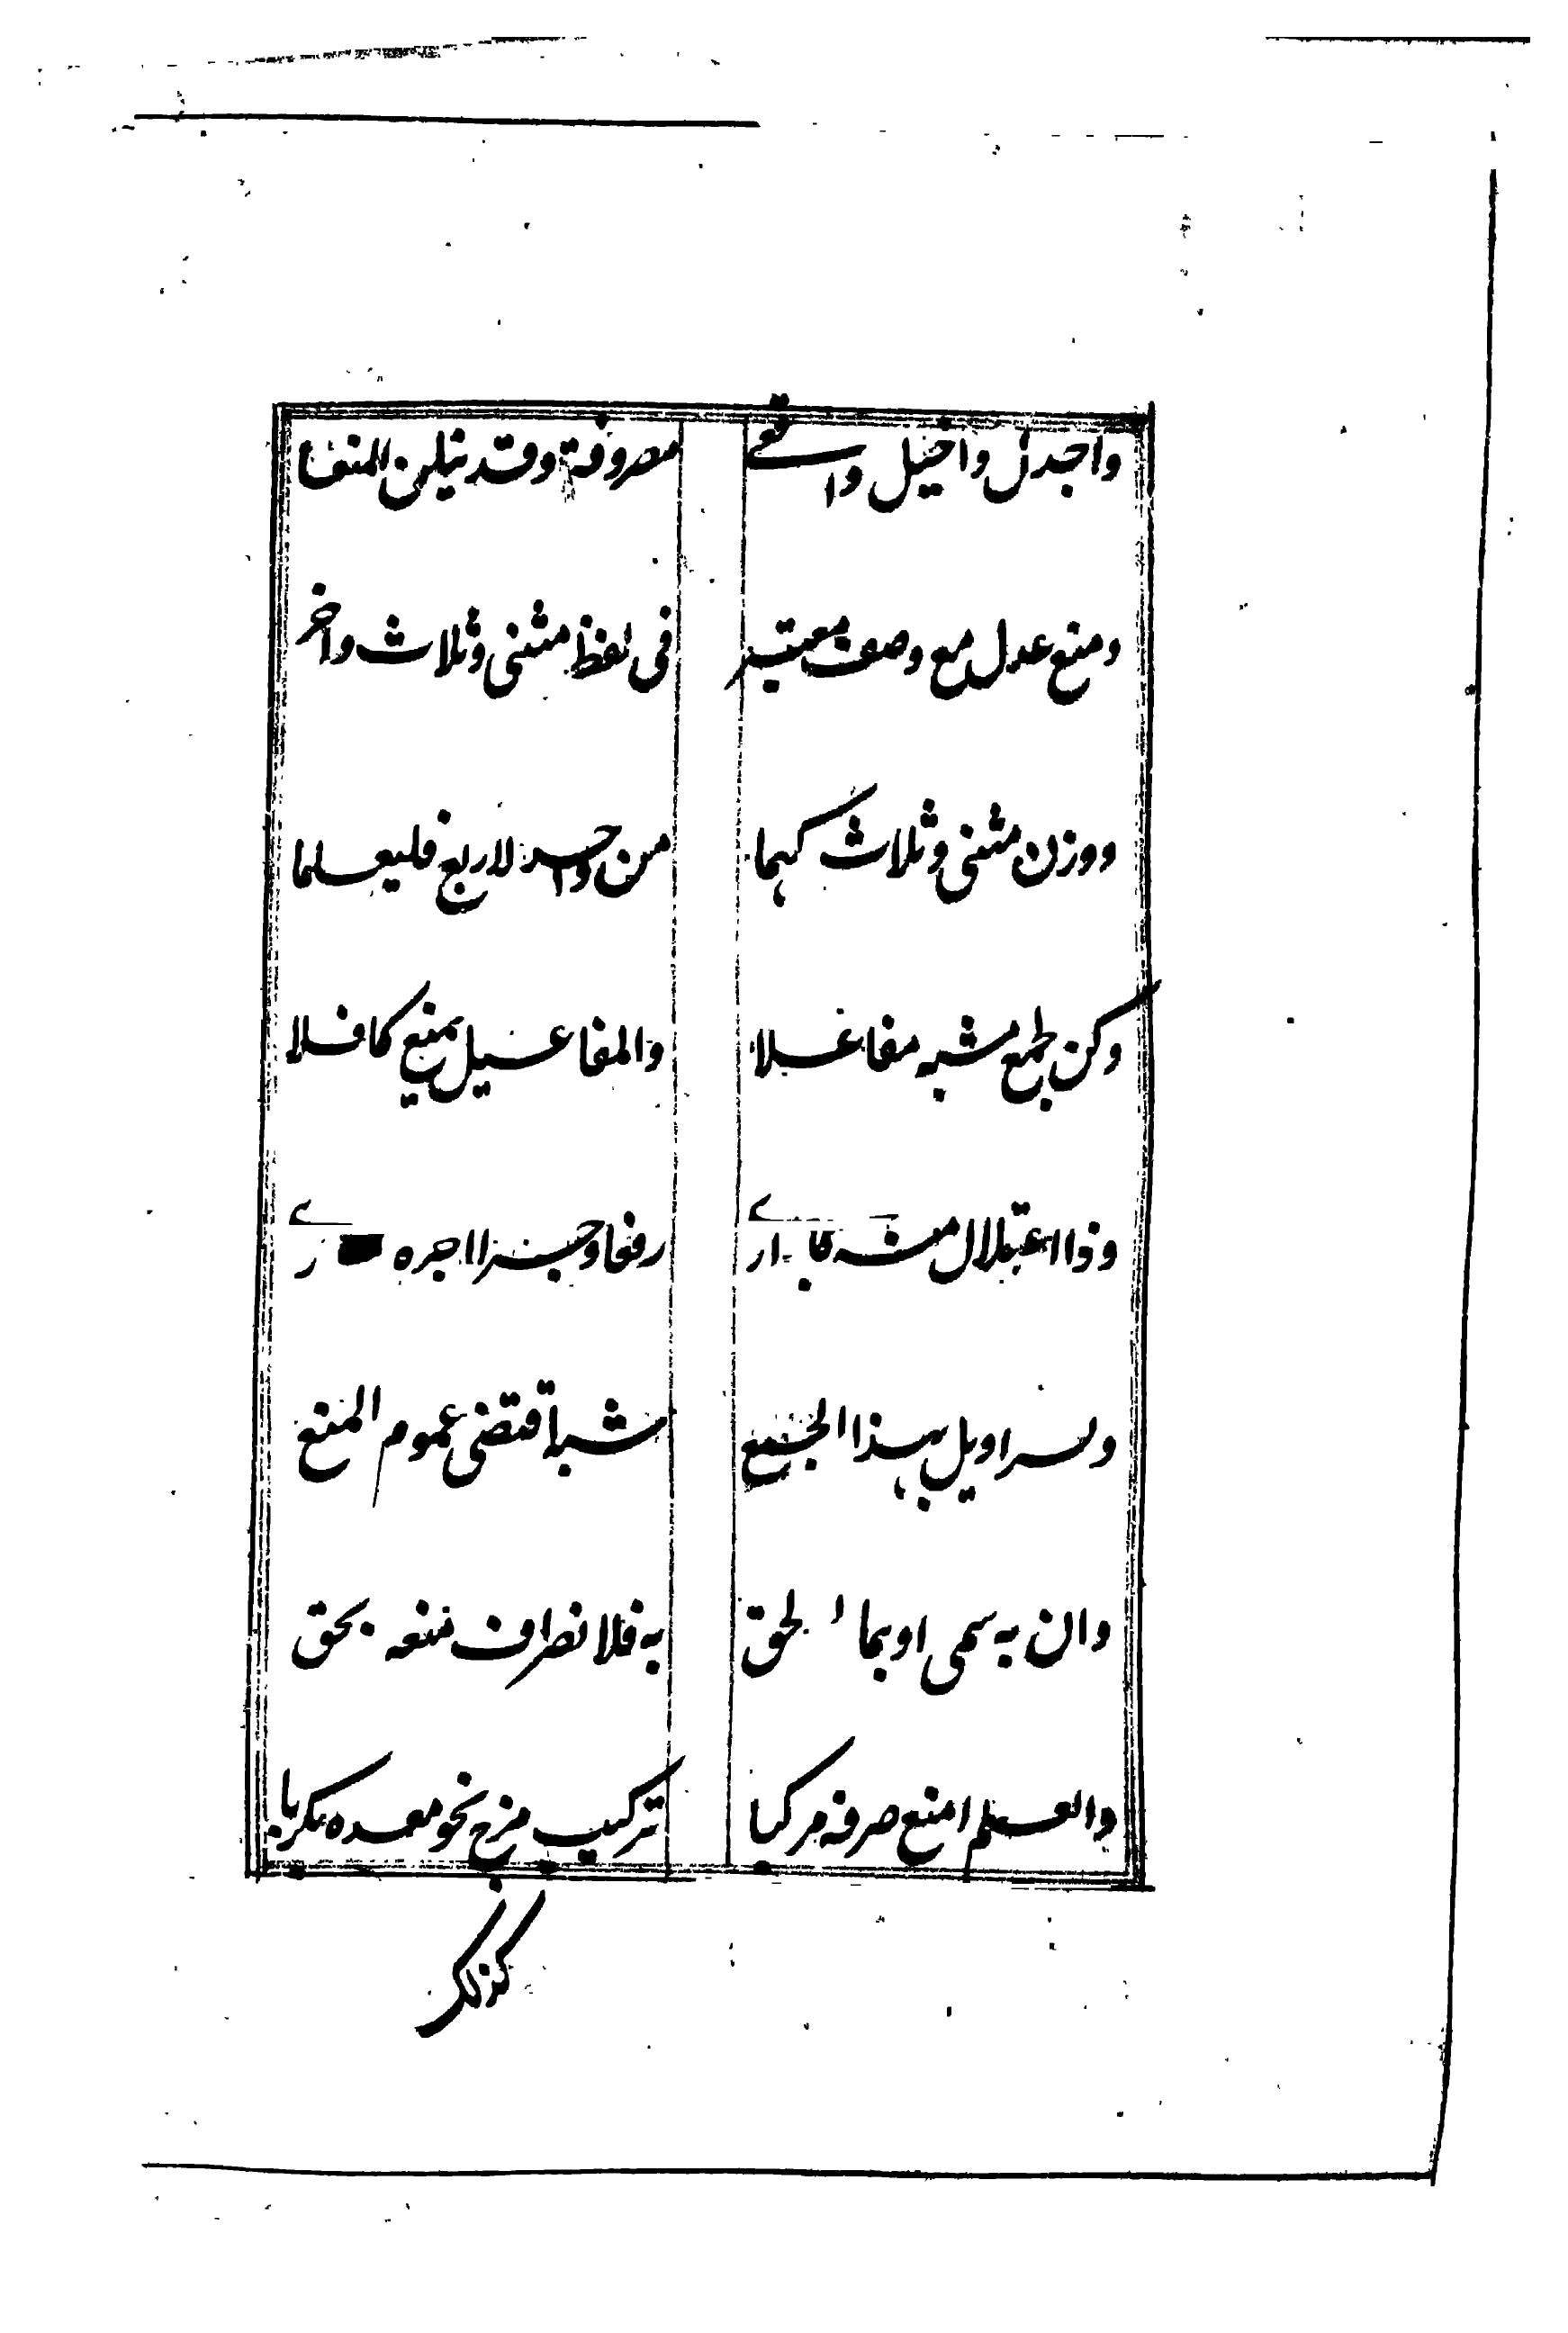 واجدل واخيل وافعى مصروفة وقد ينلن المنعا
ومنع عدل مع وصف معتبر فى لفظ مثنى وثلاث واخر
ووزن مثنى وثلاث كهما من واحد لاربع فليعلما
وكن لجمع مشبه مفاعلا والمفاعيل بمنع كافلا
وذا اعتلال منه كالجوارى رفعا وجرا اجره
ولسراويل بهذا الجمع شبه اقتضى عموم المنع
وان به سمى او بما لحق به فالانصراف منعه يحق
والعلم امنع صرفه مركبا تركيب مزج نحو معديكربا
كذلك